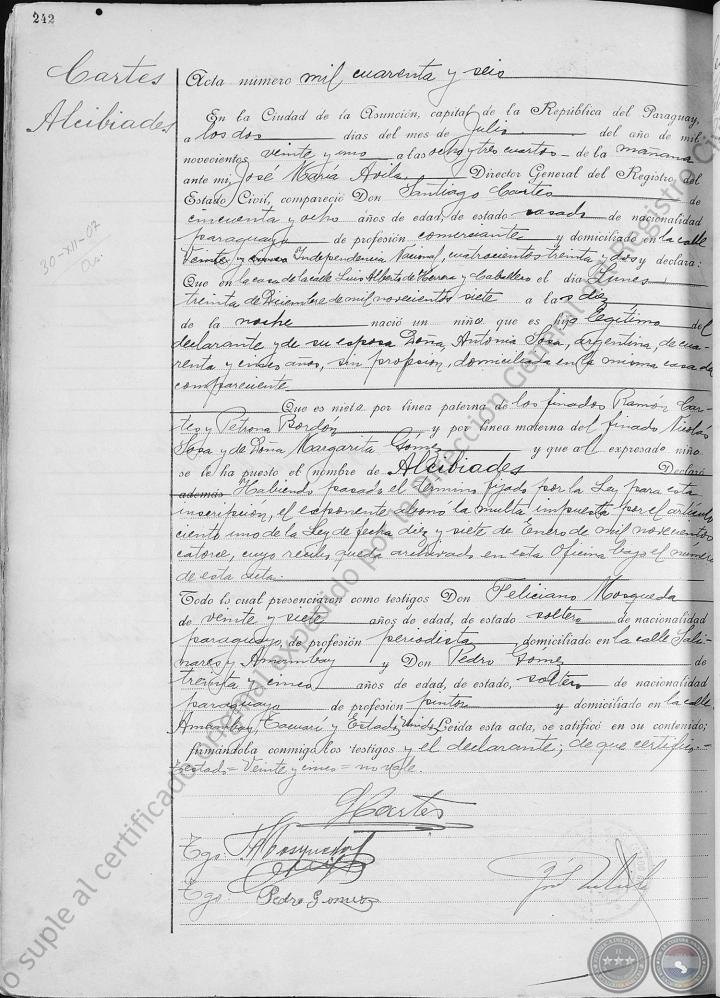 242
Cartes
Alcibiades
30-XII-07
Acta número mil cuarenta y seis
En la Ciudad de la Asunción, capital de la República del Paraguay,
a los dos días del mes de Julio del año de mil
novecientos veinte y uno a las ocho y tres cuartos de la mañana
ante mi, José María Avila Director General del Registro del
Estado Civil, compareció Don Santiago Cartes de
cincuenta y ocho años de edad, de estado casado de nacionalidad
paraguaya de profesión comerciante y domiciliado en la calle
Veinte y Independencia Nacional, cuatrocientos treinta y dos y declara:
Que en la casa de la calle Luis Alberto de Herrera y Caballero el día Lunes
treinta de Diciembre de mil novecientos siete a las diez
de la noche nació un niño que es hijo legítimo del
declarante y de su esposa Doña Antonia Sosa, argentina, de cua-
renta y cinco años, sin profesion, domiciliada en la misma casa del
compareciente
Que es nieto por línea paterna de los finados Ramón Car-
tes y Petrona Bordón y por línea materna del finado Nicolás
Sosa y de Doña Margarita Gómez y que al expresado niño
se le ha puesto el nombre de Alcibiades Declaró
además Habiendo pasado el termino fijado por la Ley para esta
inscripcion, el exponente abonó la multa impuesta por el articulo
ciento uno de la Ley de fecha diez y siete de Enero de mil novecientos
catorce, cuyo recibo queda archivado en esta Oficina bajo el numero
de esta acta.
Todo lo cual presenciaron como testigos Don Feliciano Mosqueda
de veinte y siete años de edad, de estado soltero de nacionalidad
paraguayo, de profesión periodista domiciliado en la calle Sali-
nares y Amambay y Don Pedro Gómez de
treinta y cinco años de edad, de estado, soltero de nacionalidad
paraguaya de profesión pintor y domiciliado en la calle
Amambay, Tacuarí y Estados Unidos Leida esta acta, se ratificó en su contenido;
firmándola conmigo los testigos y el declarante; de que certifico.-
Testado = Veinte y cinco = no vale.
SCartes
Tgo. FMosqueda
Tgo. Pedro Gomez
o suple al certificado original expedido por la Dirección General del Registro Civ